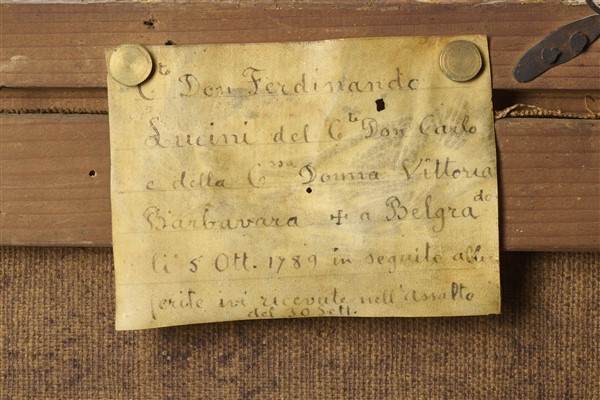 Cte Don Ferdinando
Lucini del Cte Don Carlo
e della Cssa Donna Vittoria
Barbavara ✠ a Belgrado
li 5 Ott. 1789 in seguito alle
ferite ivi ricevute nell'assalto
del 30 Sett.